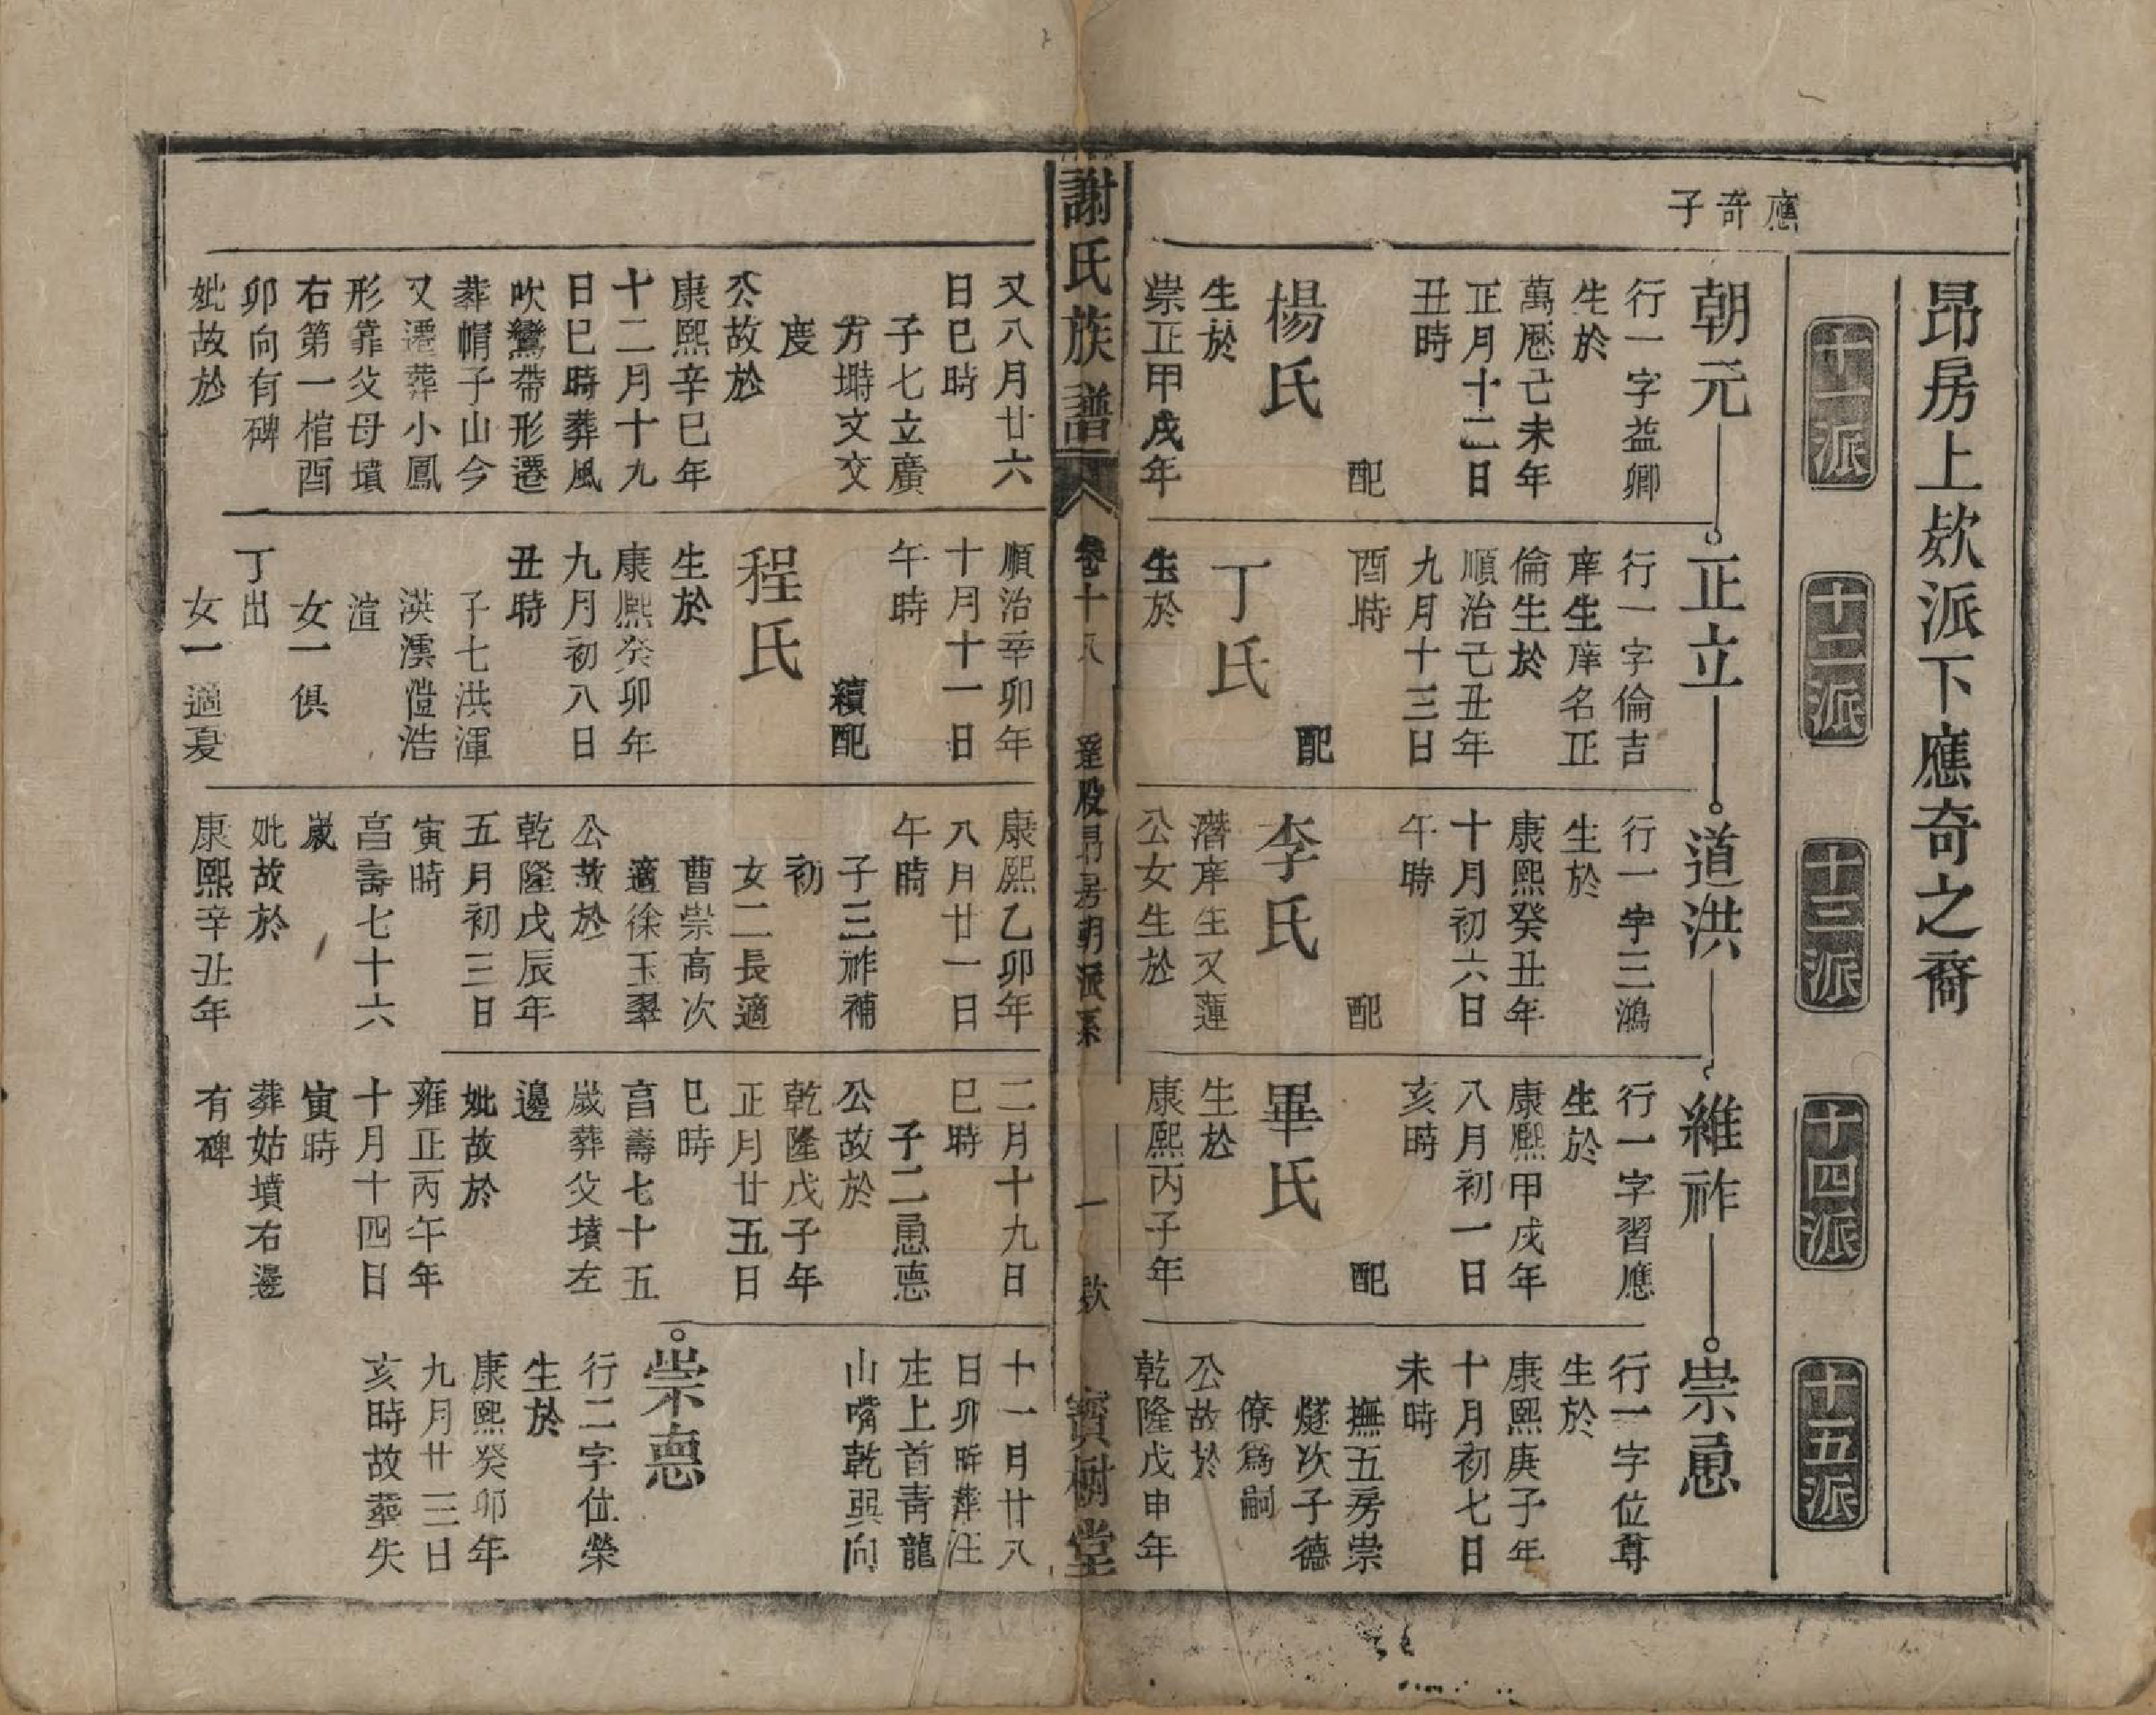 昂房上欵派下應奇之裔
十一派
十二派
十三派
十四派
十五派
應奇子
朝元
行一字益卿
生於
萬曆己未年
正月十二日
丑時
配
楊氏
生於
崇正甲戌年
又八月廿六
日巳時
子七立廣
方塒文交
度
公故於
康熙辛巳年
十二月十九
日巳時葬風
吹鸞帶形遷
葬帽子山今
又遷葬小鳳
形靠父母墳
右第一棺酉
卯向有碑
妣故於
正立
行一字倫吉
庠生庠名正
倫生於
順治己丑年
九月十三日
酉時
配
丁氏
生於
順治辛卯年
十月十一日
午時
續配
程氏
生於
康熙癸卯年
九月初八日
丑時
子七洪渾
淇澐愷浩
渲
女一俱
丁出
女一適夏
道洪
行一字三鴻
生於
康熙癸丑年
十月初六日
午時
配
李氏
潛庠生又蓮
公女生於
康熙乙卯年
八月廿一日
午時
子三祚補
初
女二長適
曹崇高次
適徐玉翠
公故於
乾隆戊辰年
五月初三日
寅時
亯壽七十六
歲
妣故於
康熙辛丑年
二月十九日
巳時
維祚
行一字習應
生於
康熙甲戌年
八月初一日
亥時
配
畢氏
生於
康熙丙子年
子二恿悳
公故於
乾隆戊子年
正月廿五日
巳時
亯壽七十五
歲葬父墳左
邊
妣故於
雍正丙午年
十月十四日
寅時
葬姑墳右邊
有碑
崇恿
行一字位尊
生於
康熙庚子年
十月初七日
未時
撫五房崇
燧次子德
僚爲嗣
公故於
乾隆戊申年
十一月廿八
日卯時葬汪
庄上首青龍
山嘴乾巽向
崇悳
行二字位榮
生於
康熙癸卯年
九月廿三日
亥時故葬失
謝氏族譜
卷十八
逵股昂房朝派系
一
欵
寶樹堂